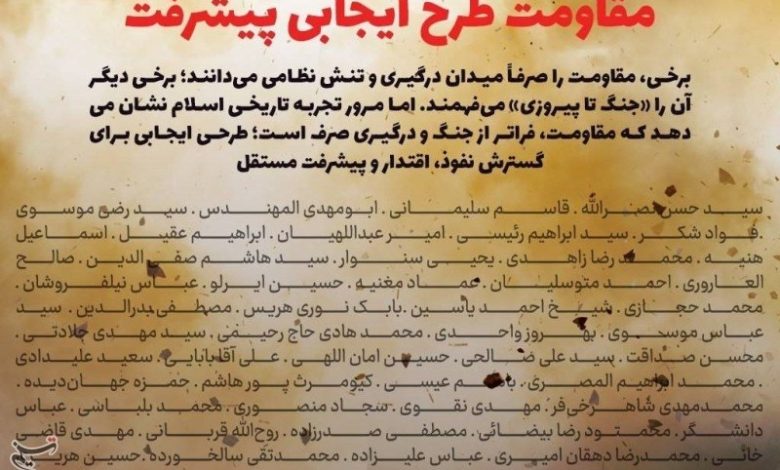 مقاومت طرح ایجابی پیشرفت
برخی، مقاومت را صرفاً میدان درگیری و تنش نظامی می‌دانند؛ برخی دیگر
آن را «جنگ تا پیروزی» می‌فهمند. اما مرور تجربه تاریخی اسلام نشان می
دهد که مقاومت، فراتر از جنگ و درگیری صرف است؛ طرحی ایجابی برای
گسترش نفوذ، اقتدار و پیشرفت مستقل
سید حسن نصرالله . قاسم سلیمانی . ابومهدی المهندس . سید رضی موسوی
. فواد شکر . سید ابراهیم رئیسی . امیر عبداللهیان . ابراهیم عقیل . اسماعیل
هنیه . محمد رضا زاهدی . یحیی سنوار . سید هاشم صفی الدین . صالح
العاروری . احمد متوسلیان . عماد مغنیه . حسین ایرلو . عباس نیلفروشان .
محمد حجازی . شیخ احمد یاسین . بابک نوری هریس . مصطفی بدرالدین . سید
عباس موسوی . بهروز واحدی . محمد هادی حاج رحیمی . سید مهدی جلادتی .
محسن صداقت . سید علی صالحی . حسین امان اللهی . علی آقابابایی . سعید علیدادی
. محمد ابراهیم المصری . باسم عیسی . کیومرث پور هاشم . حمزه جهان‌دیده .
محمدمهدی شاهرخی‌فر . مهدی نقوی . سجاد منصوری . محمد بلباشی . عباس
دانشگر . محمود رضا بیضائی . مصطفی صدرزاده . روح‌الله قربانی . مهدی قاضی
خانی . محمدرضا دهقان امیری . عباس علیزاده . محمدتقی سالخورده . حسین هریری